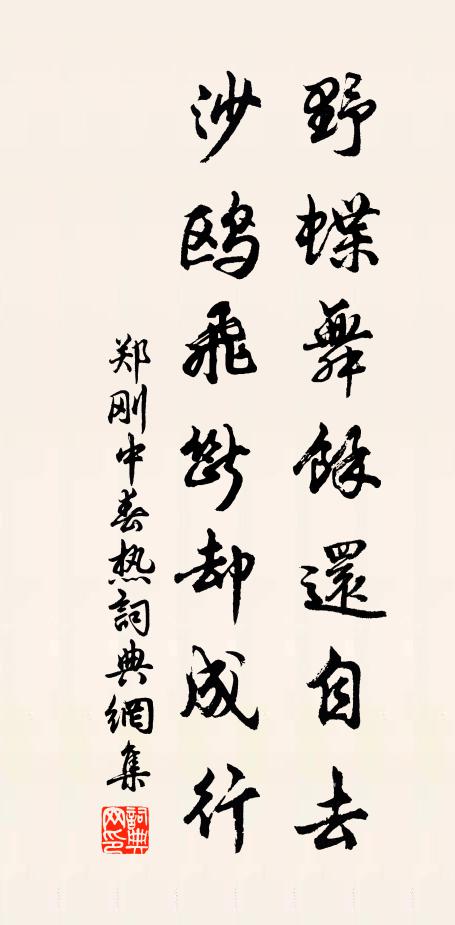 野蝶舞餘還自去
沙鸥飛斷却成行
郑刚中春热詞典網集
詞典网印